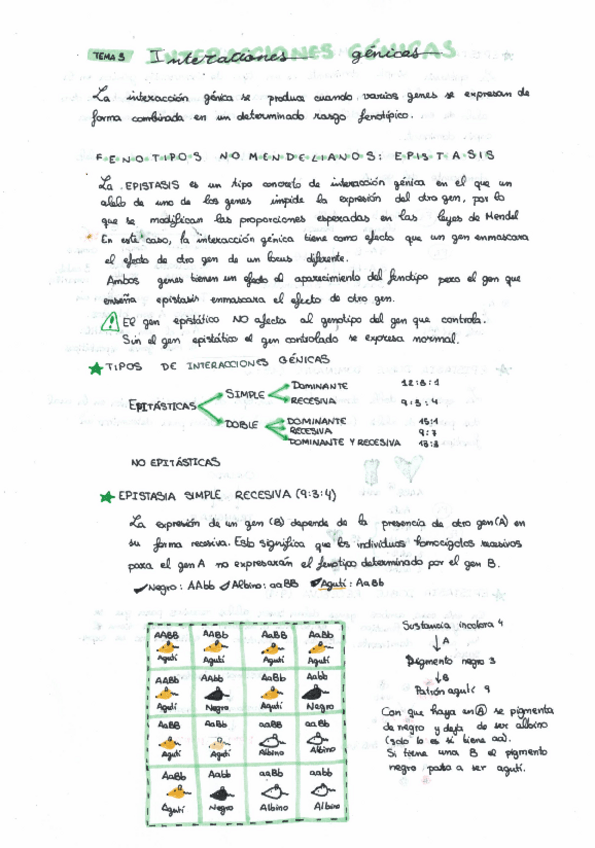 TEMA 3 Interaciones génicas
INTERACCIONES GÉNICAS
La interacción génica se produce cuando varios genes se expresan de
forma combinada en un determinado rasgo fenotípico.
FENOTIPOS NO MENDELIANOS: EPISTASIS
La EPISTASIS es un tipo concreto de interacción génica en el que un
alelo de uno de los genes impide la expresión del otro gen, por lo
que se modifican las proporciones esperadas en las leyes de Mendel
En este caso, la interacción génica tiene como efecto que un gen enmascara
el efecto de otro gen de un locus diferente.
Ambos genes tienen un efecto al aparecimiento del fenotipo pero el gen que
enseña epistasin enmascara el efecto de otro gen.
El gen epistático NO afecta al genotipo del gen que controla.
Sin el gen epistático el gen controlado se expresa normal.
TIPOS DE INTERACCIONES GÉNICAS
EPITÁSTICAS
SIMPLE
DOMINANTE 12:3:1
RECESIVA 9:3:4
DOBLE
DOMINANTE 15:1
RECESIVA 9:7
DOMINANTE Y RECESIVA 13:3
NO EPITÁSTICAS
EPISTASIA SIMPLE RECESIVA (9:3:4)
La expresión de un gen (B) depende de la presencia de otro gen (A) en
su forma recesiva. Esto significa que los individuos homocigotos recesivos
para el gen A no expresarán el fenotipo determinado por el gen B.
Negro: AAbb Albino: aaBB Agutí: AaBb
AABB AABb AaBB AaBb
Agutí Agutí Agutí Agutí
AABb AAbb AaBb Aabb
Agutí Negro Agutí Negro
AaBB AaBb aaBB aaBb
Agutí Agutí Albino Albino
AaBb Aabb aaBb aabb
Agutí Negro Albino Albino
Sustancia incolora 4
A
Pigmento negro 3
B
Patrón agutí 9
Con que haya un A se pigmenta
de negro y deja de ser albino
(solo lo es si tiene aa).
Si tiene una B el pigmento
negro pasa a ser agutí.